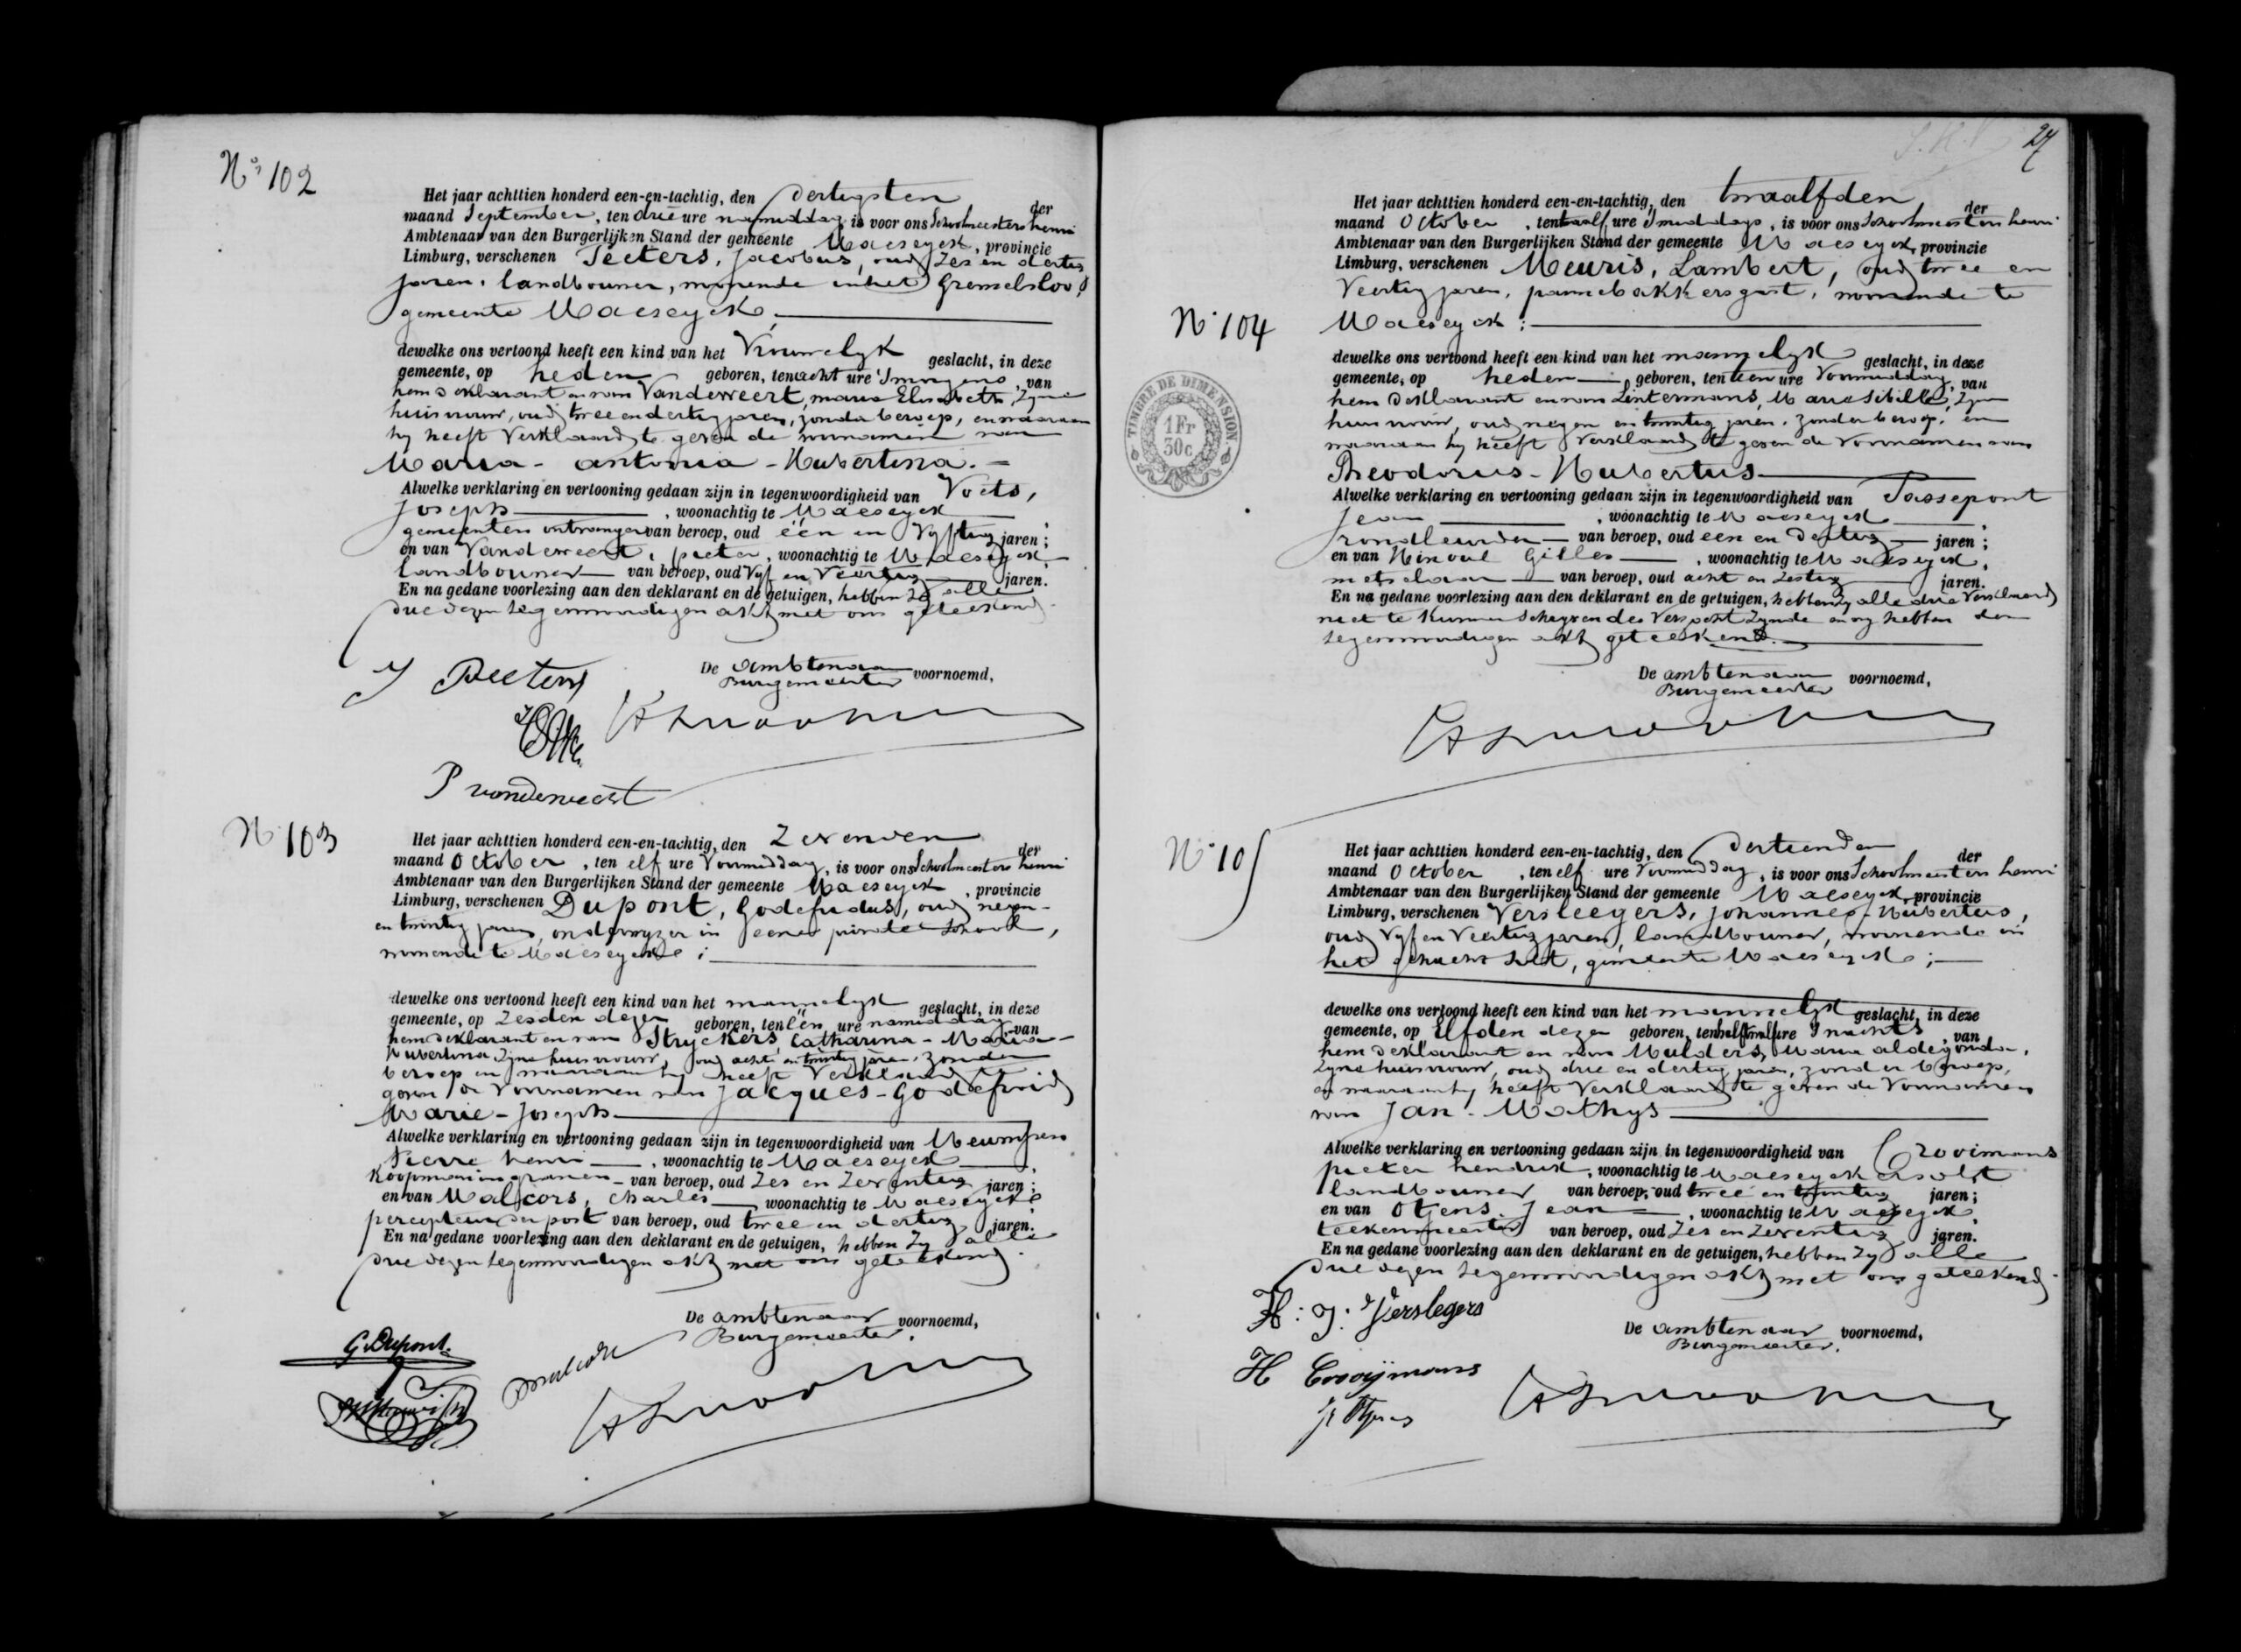 N° 102
Het jaar achttien honderd een-en-tachtig, den dertigsten der
maand September, ten drie ure namiddag is voor ons Schoolmeesters henri
Ambtenaar van den Burgerlijken Stand der gemeente Maeseyck, provincie
Limburg, verschenen Peeters, Jacobus, oud Zes en dertig
jaren, landbouwer, wonende in het Gremelsloo,
gemeente Maeseyck;
dewelke ons vertoond heeft een kind van het Vrouwelyk geslacht, in deze
gemeente, op heden geboren, ten acht ure 's morgens, van
hem deklarant en van Vanderweert, maria Elisabeth, Zyne
huisvrouw, oud twee en dertig jaren, zonder beroep, en waaraan
hy heeft Verklaard te geven de voornamen van
Maria - antonia - Hubertina. -
Alwelke verklaring en vertooning gedaan zijn in tegenwoordigheid van Voets,
Joseph, woonachtig te Maeseyck
gemeenten ontvanger van beroep, oud één en Vyftig jaren;
en van Vanderweert, pieter, woonachtig te Maeseyck
landbouwer van beroep, oud Vyf en Veertig jaren.
En na gedane voorlezing aan den deklarant en de getuigen, hebben zy alle
drie dezen tegenwoordigen akt met ons geteekend.
De ambtenaar voornoemd,
Burgemeester
J Peeters
P vanderweert
N° 103
Het jaar achttien honderd een-en-tachtig, den Zevenden der
maand October, ten elf ure Voormiddag, is voor ons Schoolmeesters henri
Ambtenaar van den Burgerlijken Stand der gemeente Maeseyck, provincie
Limburg, verschenen Dupont, Godefridus, oud negen-
en twintig jaren, onderwyzer in eene private School,
wonende te Maeseyck;
dewelke ons vertoond heeft een kind van het mannelyk geslacht, in deze
gemeente, op Zesden dezer geboren, ten één ure namiddag, van
hem deklarant en van Stryckers, Catharina - Maria -
Hubertina Zyne huisvrouw, oud acht en twintig jaren, zonder
beroep en waaraan hy heeft Verklaard te
geven de Voornamen van Jacques - Godefroid
Marie - Joseph
Alwelke verklaring en vertooning gedaan zijn in tegenwoordigheid van
Pierre henri, woonachtig te Maeseyck
Koopman in granen van beroep, oud Zes en Zeventig jaren;
en van Malfcors, Charles, woonachtig te Maeseyck
percepteur der post van beroep, oud twee en dertig jaren.
En na gedane voorlezing aan den deklarant en de getuigen, hebben Zy alle
drie dezen tegenwoordigen akt met ons geteekend.
De ambtenaar voornoemd,
Burgemeester,
G. Dupont.
27
Het jaar achttien honderd een-en-tachtig, den twaalfden der
maand October, ten twaalf ure 's middags, is voor ons Schoolmeesters henri
Ambtenaar van den Burgerlijken Stand der gemeente Maeseyck, provincie
Limburg, verschenen Meuris, Lambert, oud twee en
Veertig jaren, pannebakkersgast, wonende te
N° 104 Maeseyck;
dewelke ons vertoond heeft een kind van het mannelyk geslacht, in deze
gemeente, op heden geboren, ten tien ure Voormiddag, van
hem deklarant en van Lintermans, Maria Sibilla, Zyne
huisvrouw, oud negen en twintig jaren, zonder beroep, en
waaraan hy heeft Verklaard te geven de Voornamen van
Theodorus - Hubertus
TIMBRE DE DIMENSION.
1 Fr
30c
Alwelke verklaring en vertooning gedaan zijn in tegenwoordigheid van Passepont
Jean, woonachtig te Maeseyck
rondleurder van beroep, oud een en dertig jaren;
en van Gilles, woonachtig te Maeseyck,
metselaar van beroep, oud acht en zestig jaren.
En na gedane voorlezing aan den deklarant en de getuigen, hebben zy alle drie Verklaard
niet te kunnen schryven des Verzocht Zynde en wy hebben den
tegenwoordigen akt geteekend.
De ambtenaar voornoemd,
Burgemeester
N° 105
Het jaar achttien honderd een-en-tachtig, den dertienden der
maand October, ten elf ure Voormiddag, is voor ons Schoolmeesters henri
Ambtenaar van den Burgerlijken Stand der gemeente Maeseyck, provincie
Limburg, verschenen Versleegers, Johannes - Hubertus,
oud Vyf en Veertig jaren, landbouwer, wonende in
het gehucht, gemeente Maeseyck;
dewelke ons vertoond heeft een kind van het mannelyk geslacht, in deze
gemeente, op Elfden dezer geboren, ten half twaalf ure 's nachts, van
hem deklarant en van Mulders, Maria aldegonda,
Zyne huisvrouw, oud drie en dertig jaren, zonder beroep,
en waaraan hy heeft Verklaard te geven de Voornamen
van Jan - Mathys
Alwelke verklaring en vertooning gedaan zijn in tegenwoordigheid van Crooimans
pieter hendrik, woonachtig te Maeseyck
landbouwer van beroep, oud twee en twintig jaren;
en van Otjens, Jean, woonachtig te Maeseyck,
teekenmeester van beroep, oud Zes en Zeventig jaren.
En na gedane voorlezing aan den deklarant en de getuigen, hebben Zy alle
drie dezen tegenwoordigen akt met ons geteekend.
De ambtenaar voornoemd,
Burgemeester.
H: J: Verslegers
H Crooijmans
J Otjens